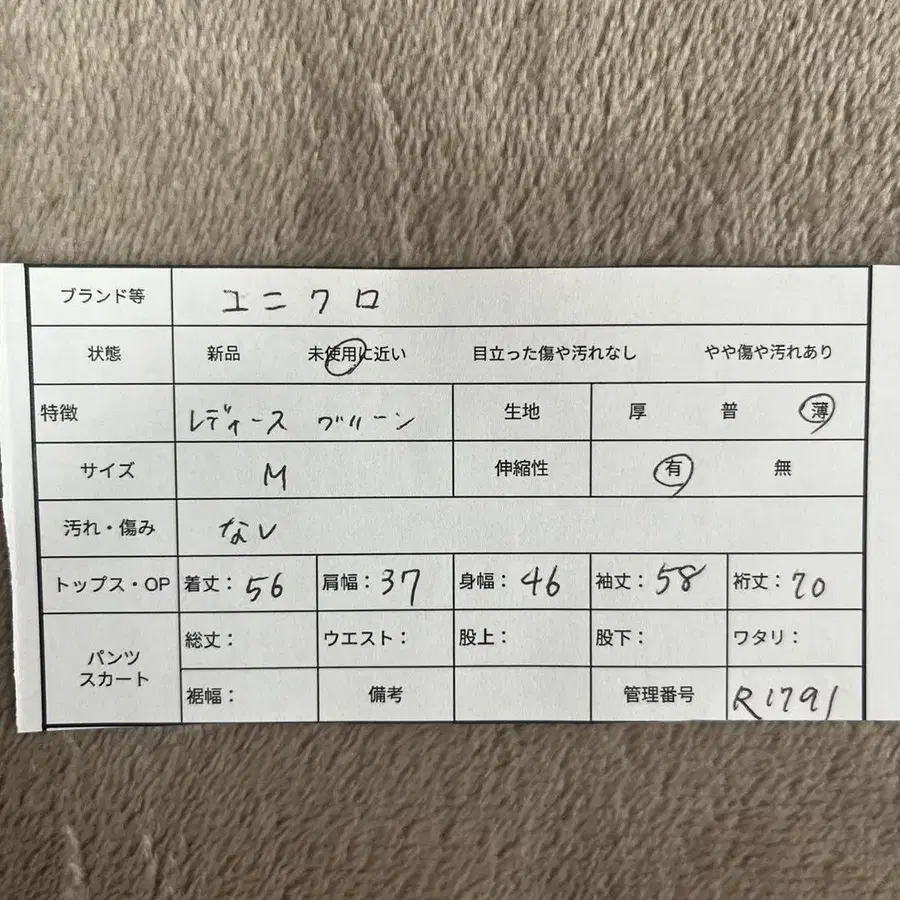 ブランド等 ユニクロ
状態 新品 未使用に近い 目立った傷や汚れなし やや傷や汚れあり
特徴 レディース グリーン 生地 厚 普 薄
サイズ M 伸縮性 有 無
汚れ・傷み なし
トップス・OP 着丈：56 肩幅：37 身幅：46 袖丈：58 裄丈：70
パンツ
スカート
総丈： ウエスト： 股上： 股下： ワタリ：
裾幅： 備考 管理番号 R1791